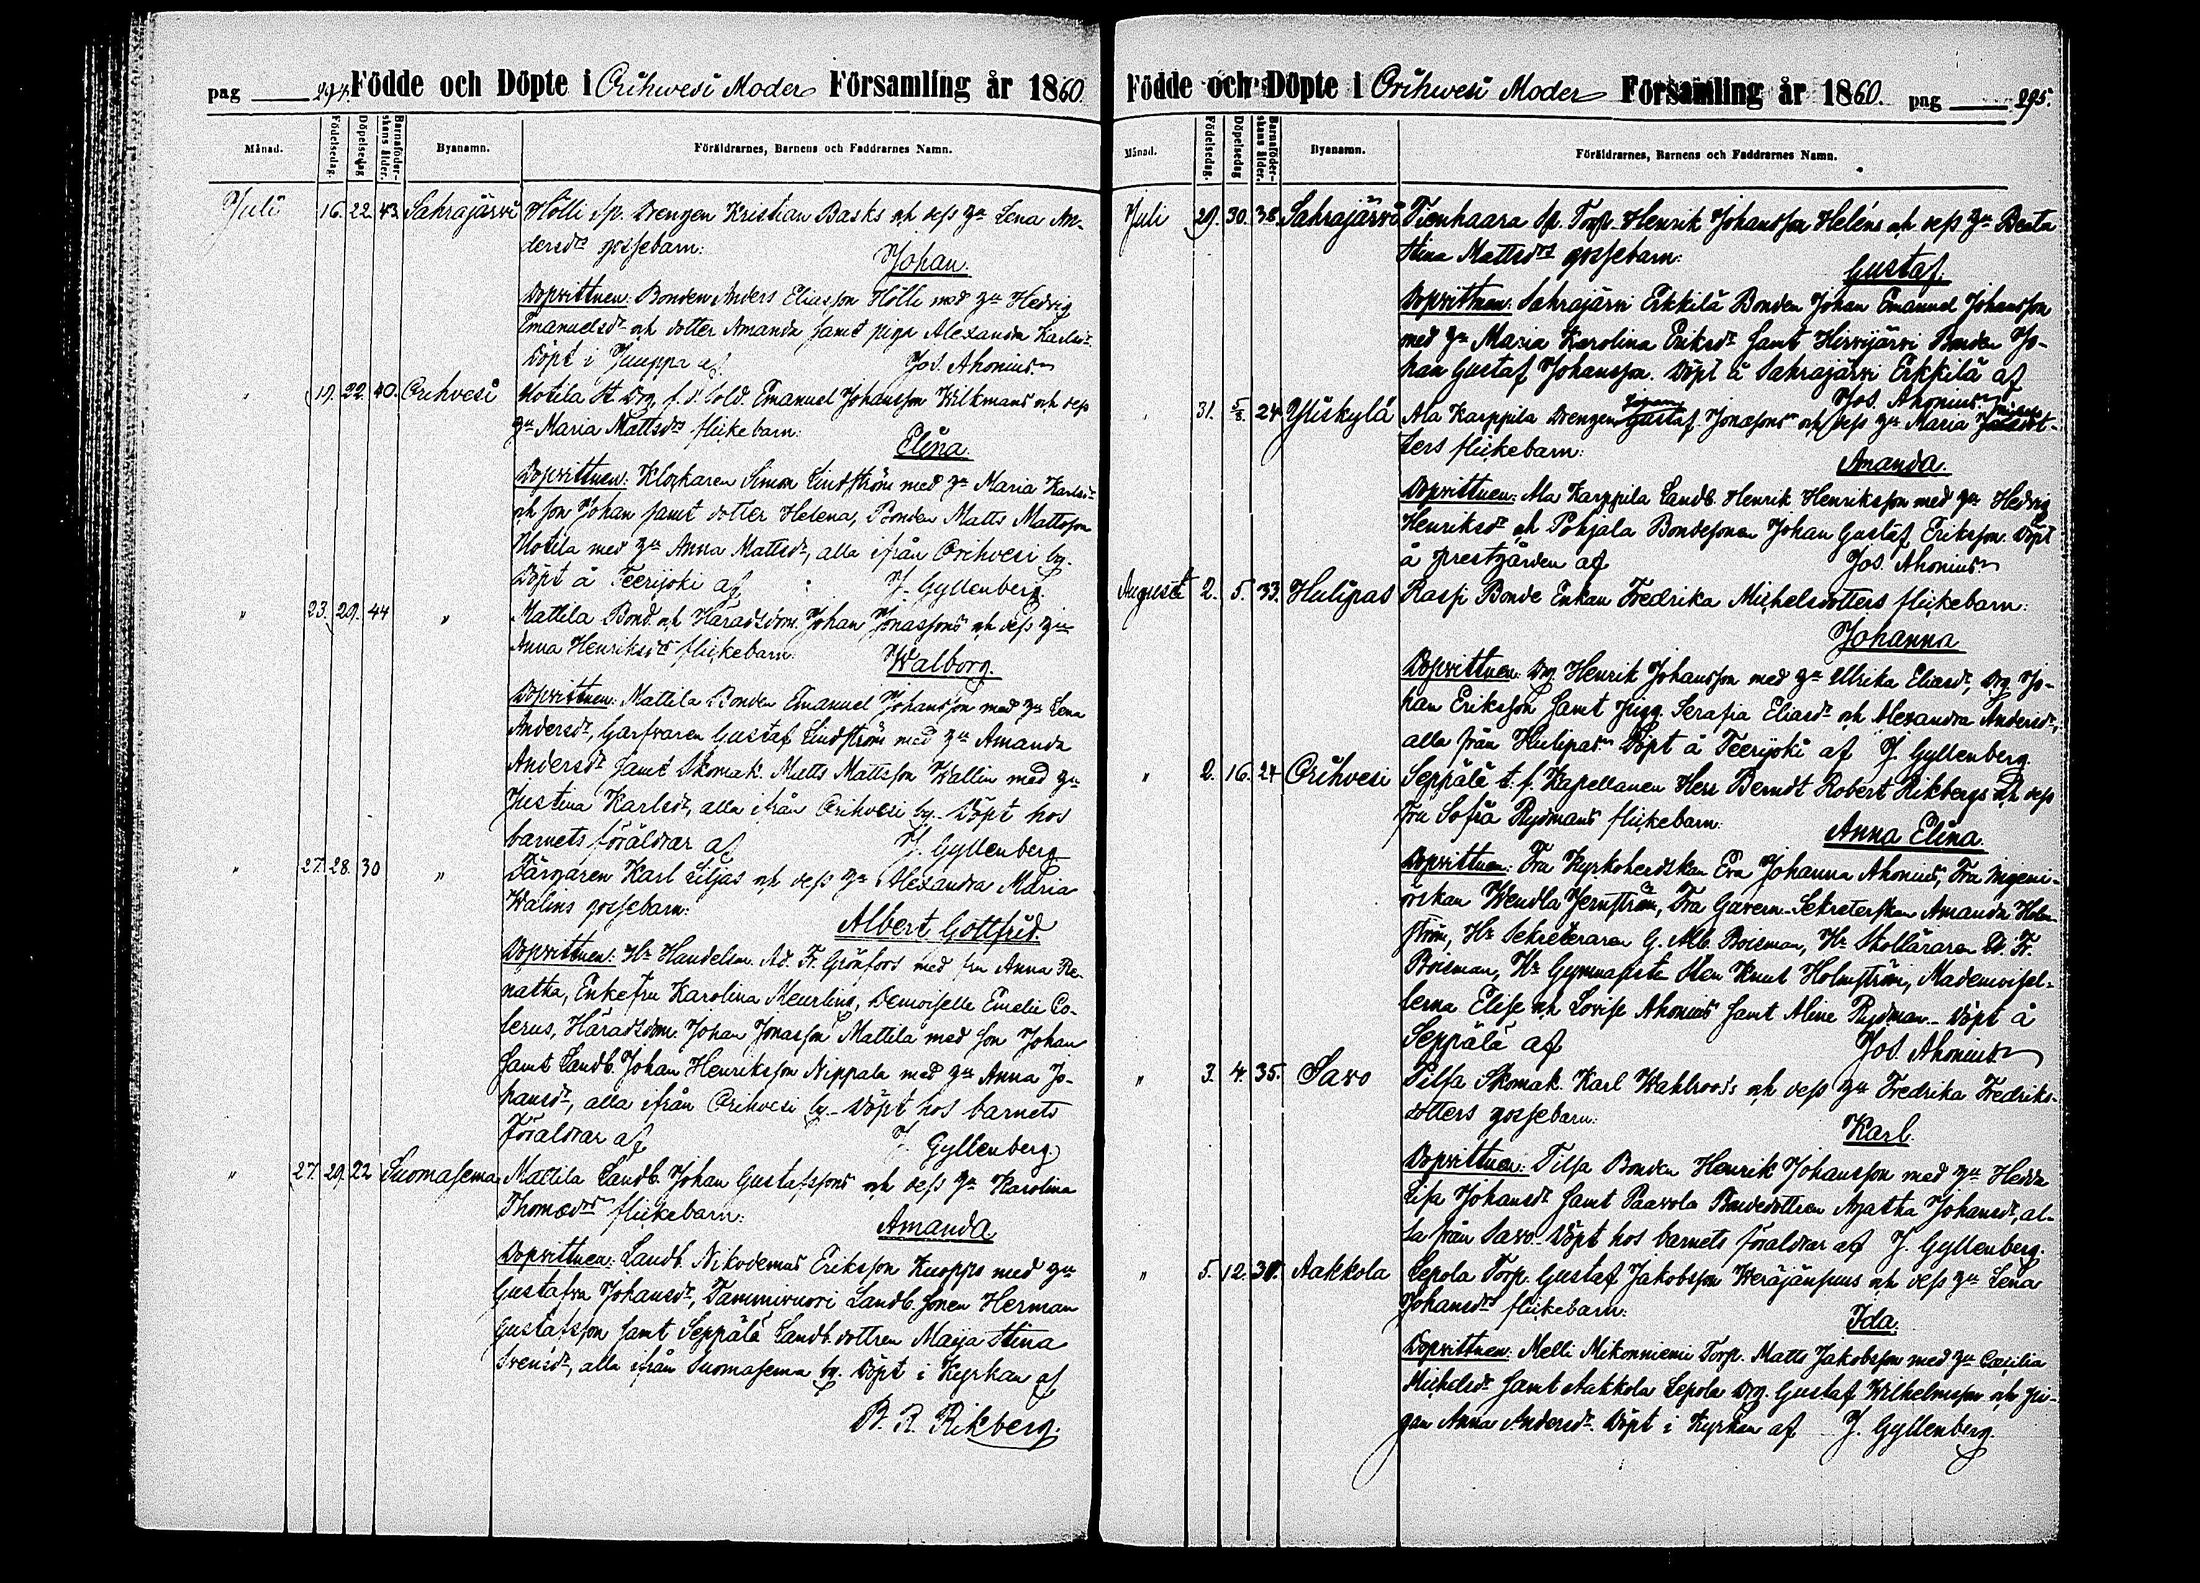 pag 294. Födde och Döpte i Orihwesi Moder Församling år 1860.
Månad. Födelsedag. Döpelsedag Barnaföderskans ålder. Byanamn. Föräldrarnes, Barnens och Faddrarnes Namn.
Juli 16. 22. 43. Sahrajärvi Hölli Sp. Drengen Kristian Basks och dess hu Lena An-
dersdrs gossebarn:
Johan.
Dopvittnen: Bonden Anders Eliasson Hölli med hu Hedvig
Emanuelsdr och dotter Amanda samt piga Alexandra Karlsdr.
Döpt i Juuppa af Jos. Ahonius
" 19. 22. 40. Orihvesi Motila St. Drg f. d. Sold. Emanuel Johansson Wilkmans och dess
hu Maria Mattsdrs flickebarn:
Elina.
Dopvittnen: Klockaren Simon Lindström med hu Maria Karlsdr
och son Johan samt dotter Helena, Bonden Matts Mattsson
Motila med hu Anna Mattsdr, alla ifrån Orihvesi by.
Döpt å Teerijoki af J. Gyllenberg.
" 23. 29. 44 " Mattila Bond. och Häradsdom. Johan Jonassons och dess hu
Anna Henriksdrs flickebarn:
Walborg.
Dopvittnen: Mattila Bonden Emanuel Johansson med hu Lena
Andersdr, Garfvaren Gustaf Lindström med hu Amanda
Andersdr samt Skomak. Matts Mattsson Wallin med hu
Justina Karlsdr, alla ifrån Orihvesi by. Döpt hos
barnets föräldrar af J. Gyllenberg
" 27. 28. 30 " Färgaren Karl Liljas och dess hu Alexandra Maria
Walins gossebarn:
Albert Gottfrid.
Dopvittnen: Hr Handelsm. Ad. Fr. Grönfors med fru Anna Re-
natha, Enkefru Karolina Meurling, Demoiselle Emelie Co-
lerus, Häradsdom. Johan Jonasson Mattila med son Johan
samt Landb. Johan Henriksson Nippala med hu Anna Jo-
hansdr, alla ifrån Orihvesi by. Döpt hos barnets
föräldrar af J. Gyllenberg
" 27. 29. 22 Suomasema Mattila Landb. Johan Gustafssons och dess hu Karolina
Thomædrs flickebarn:
Amanda.
Dopvittnen: Landb. Nikodemus Eriksson Knoppi med hu
Gustafva Johansdr, Tammivuori Landb. sonen Herman
Gustafsson samt Seppälä Landb. dottren Maija Stina
Svensdr, alla ifrån Suomasema by. Döpt i Kyrkan af
B. R. Rikberg.
Födde och Döpte i Orihwesi Moder Församling år 1860. pag 295.
Månad. Födelsedag. Döpelsedag Barnaföderskans ålder. Byanamn. Föräldrarnes, Barnens och Faddrarnes Namn.
Juli 29. 30. 38. Sahrajärvi Tienhaara Sp. Torp. Henrik Johansson Heléns och dess hu Beata
Stina Mattsdrs gossebarn:
Gustaf.
Dopvittnen: Sahrajärvi Erkkilä Bonden Johan Emanuel Johansson
med hu Maria Karolina Eriksdr samt Hirvijärvi Bonden Jo-
han Gustaf Johansson. Döpt å Sahrajärvi Erkkilä af
Jos. Ahonius
" 31. 5/8. 24. Yliskylä Ala Karppila Drengen Johan Gustaf Jonæsons och dess hu Maria
ters flickebarn:
Amanda.
Dopvittnen: Ala Karppila Landb. Henrik Henriksson med hu Hedvig
Henriksdr och Pohjala Bondesonen Johan Gustaf Eriksson. Döpt
å prestgården af Jos. Ahonius
Augusti 2. 5. 33. Hulipas Raspi Bonde Enkan Fredrika Michelsdotters flickebarn:
Johanna
Dopvittnen: Drg Henrik Johansson med hu Ulrika Eliasdr, Drg Jo-
han Eriksson samt pigg. Serafia Eliasdr och Alexandra Andersdr,
alla från Hulipas. Döpt å Teerijoki af J. Gyllenberg
" 2. 16. 24 Orihvesi Seppälä t. f. Kapellanen Herr Berndt Robert Rikbergs och dess
Fru Sofia Rydmans flickebarn:
Anna Elina.
Dopvittnen: Fru Kyrkoherdskan Eva Johanna Ahonius, Fru Ingeni-
örskan Wendla Jernström, Fru Guvern. Sekreterskan Amanda Holm-
ström, Hr Sekreteraren G. Alb. Boisman, Hr Skolläraren O. Fr.
Boisman, Hr Gymnasisten Sten Knut Holmström, Mademoisel-
lerna Elise och Lovise Ahonius samt Aline Rydman. Döpt å
Seppälä af Jos. Ahonius
" 3. 4. 35. Savo Tilsa Skomak. Karl Wahlroos's och dess hu Fredrika Fredriks-
dotters gossebarn:
Karl.
Dopvittnen: Tilsa Bonden Henrik Johansson med hu Hedda
Lisa Johansdr samt Paavola Bondedottren Agatha Johansdr, al-
la från Savo. Döpt hos barnets föräldrar af J. Gyllenberg.
" 5. 12. 38. Aakkola Lepola Torp. Gustaf Jakobsson Weräjänsuus och dess hu Lena
Johansdrs flickebarn:
Ida.
Dopvittnen: Melli Mikonniemi Torp. Matts Jakobsson med hu Cæcilia
Michelsdr samt Aakkola Lepola Drg. Gustaf Wilhelmsson och pi-
gan Anna Andersdr. Döpt i Kyrkan af J. Gyllenberg.